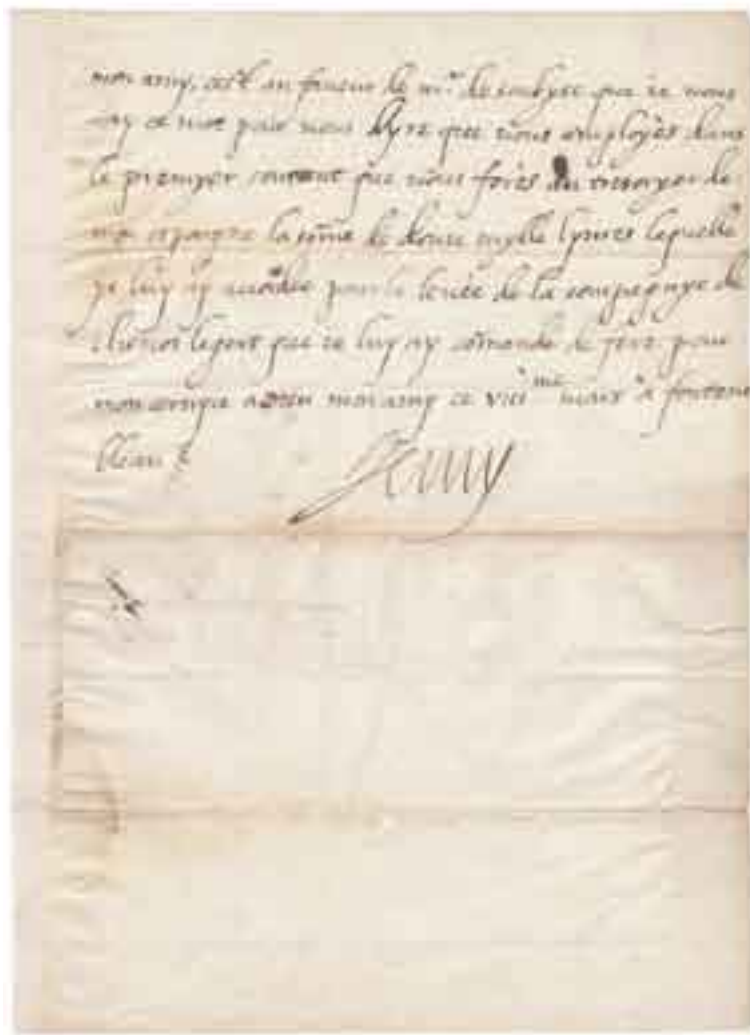 mon amy, c'est an faveur de mr de soubyse que ie vous
ay ce mot pour vous dyre que vous employès dans
le premyer contant que vous feres au tresoryer de
mon espargne la sõme de douse mylle lyvres lequelle
je luy ay acordée pour la levée de la compagnye de
que ie luy ay cõmandé de fere pour
mon servyce adieu mon amy ce viiime mars à fontene
bleau
Henry